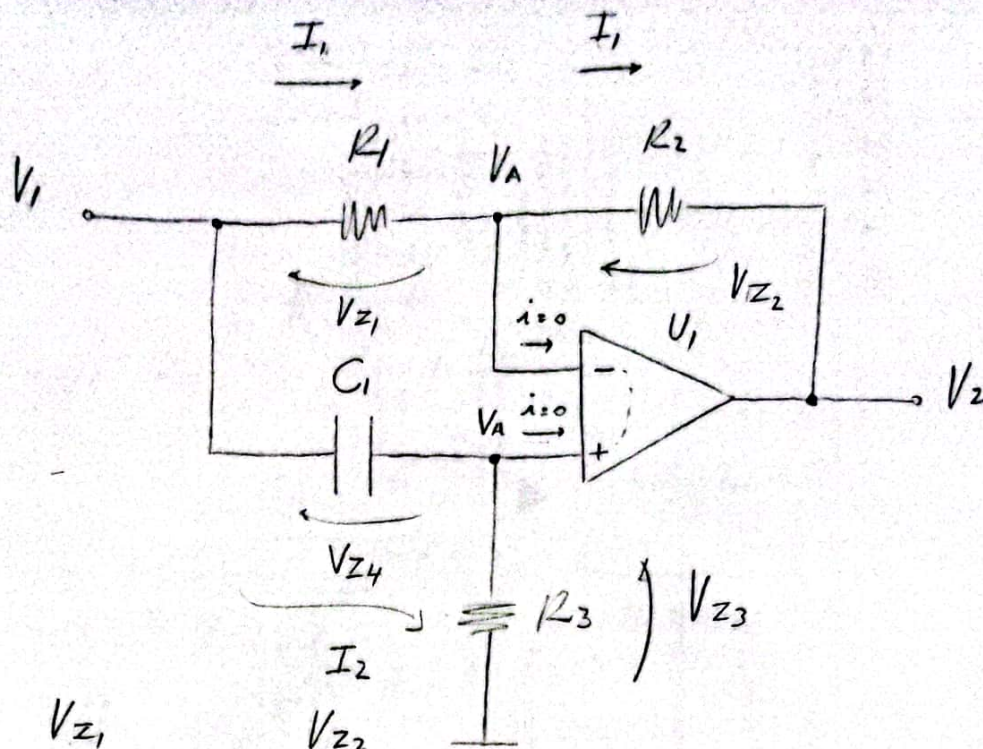 I₁ I₁
R₁ V_A R₂
V₁
V_Z₁ V_Z₂
i=0 U₁
C₁ -
V_A i=0 V₂
+
V_Z4
R₃ V_Z3
I₂
V_Z₁ V_Z₂